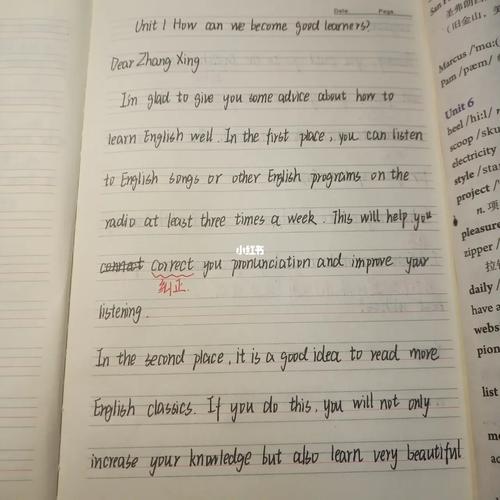 Date
Page
Unit 1 How can we become good learners?
Dear Zhang Xing
I'm glad to give you some advice about how to
learn English well. In the first place, you can listen
to English songs or other English programs on the
radio at least three times a week. This will help you
小红书
connact correct you pronunciation and improve your
纠正
listening.
In the second place, it is a good idea to read more
English classics. If you do this, you will not only
increase your knowledge but also learn very beautiful
San
圣弗朗
(旧金山,美
Marcus /'mɑː(
Pam /pæm/
Unit 6
heel /hiːl/
scoop /sku
electricity
style /sta
project /'
n. 项
pleasure
zipper /
拉
daily /
have a
webs
pion
list
me
ac